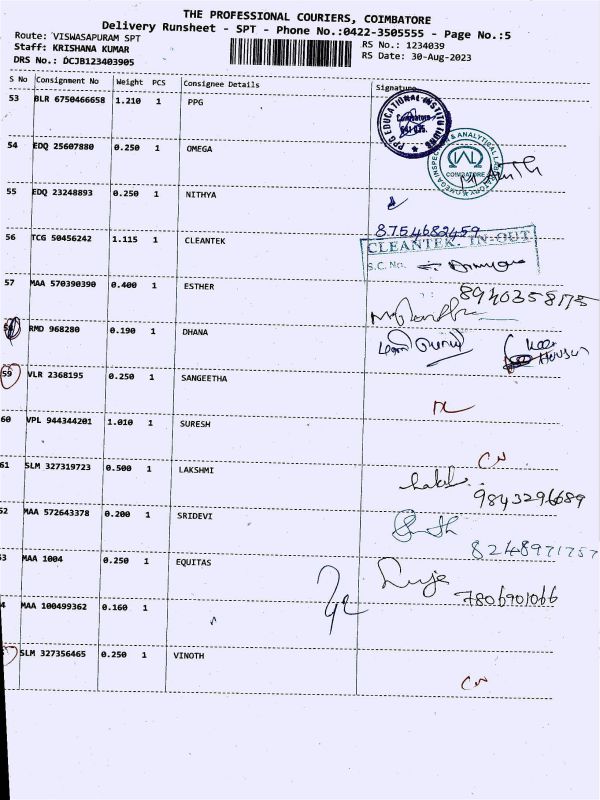 THE PROFESSIONAL COURIERS, COIMBATORE
Delivery Runsheet - SPT - Phone No.:0422-3505555 - Page No.:5
Route: VISWASAPURAM SPT
RS No.: 1234039
Staff: KRISHANA KUMAR
RS Date: 30-Aug-2023
DRS No.: DCJB123403905
S No Consignment No Weight PCS Consignee Details Signature
53 BLR 6750466658 1.210 1 PPG
PPG EDUCATIONAL INSTITUTIONS
Coimbatore
641 035.
54 EDQ 25607880 0.250 1 OMEGA
& ANALYTICAL
COIMBATORE
55 EDQ 23248893 0.250 1 NITHYA
8754682459
56 TCG 50456242 1.115 1 CLEANTEK
CLEANTEK. IN-OUT
S.C. No.
57 MAA 570390390 0.400 1 ESTHER
8940358175
58 RMD 968280 0.190 1 DHANA
59 VLR 2368195 0.250 1 SANGEETHA
60 VPL 944344201 1.010 1 SURESH
61 SLM 327319723 0.500 1 LAKSHMI
9843296689
52 MAA 572643378 0.200 1 SRIDEVI
8248971757
53 MAA 1004 0.250 1 EQUITAS
7806901066
4 MAA 100499362 0.160 1
SLM 327356465 0.250 1 VINOTH